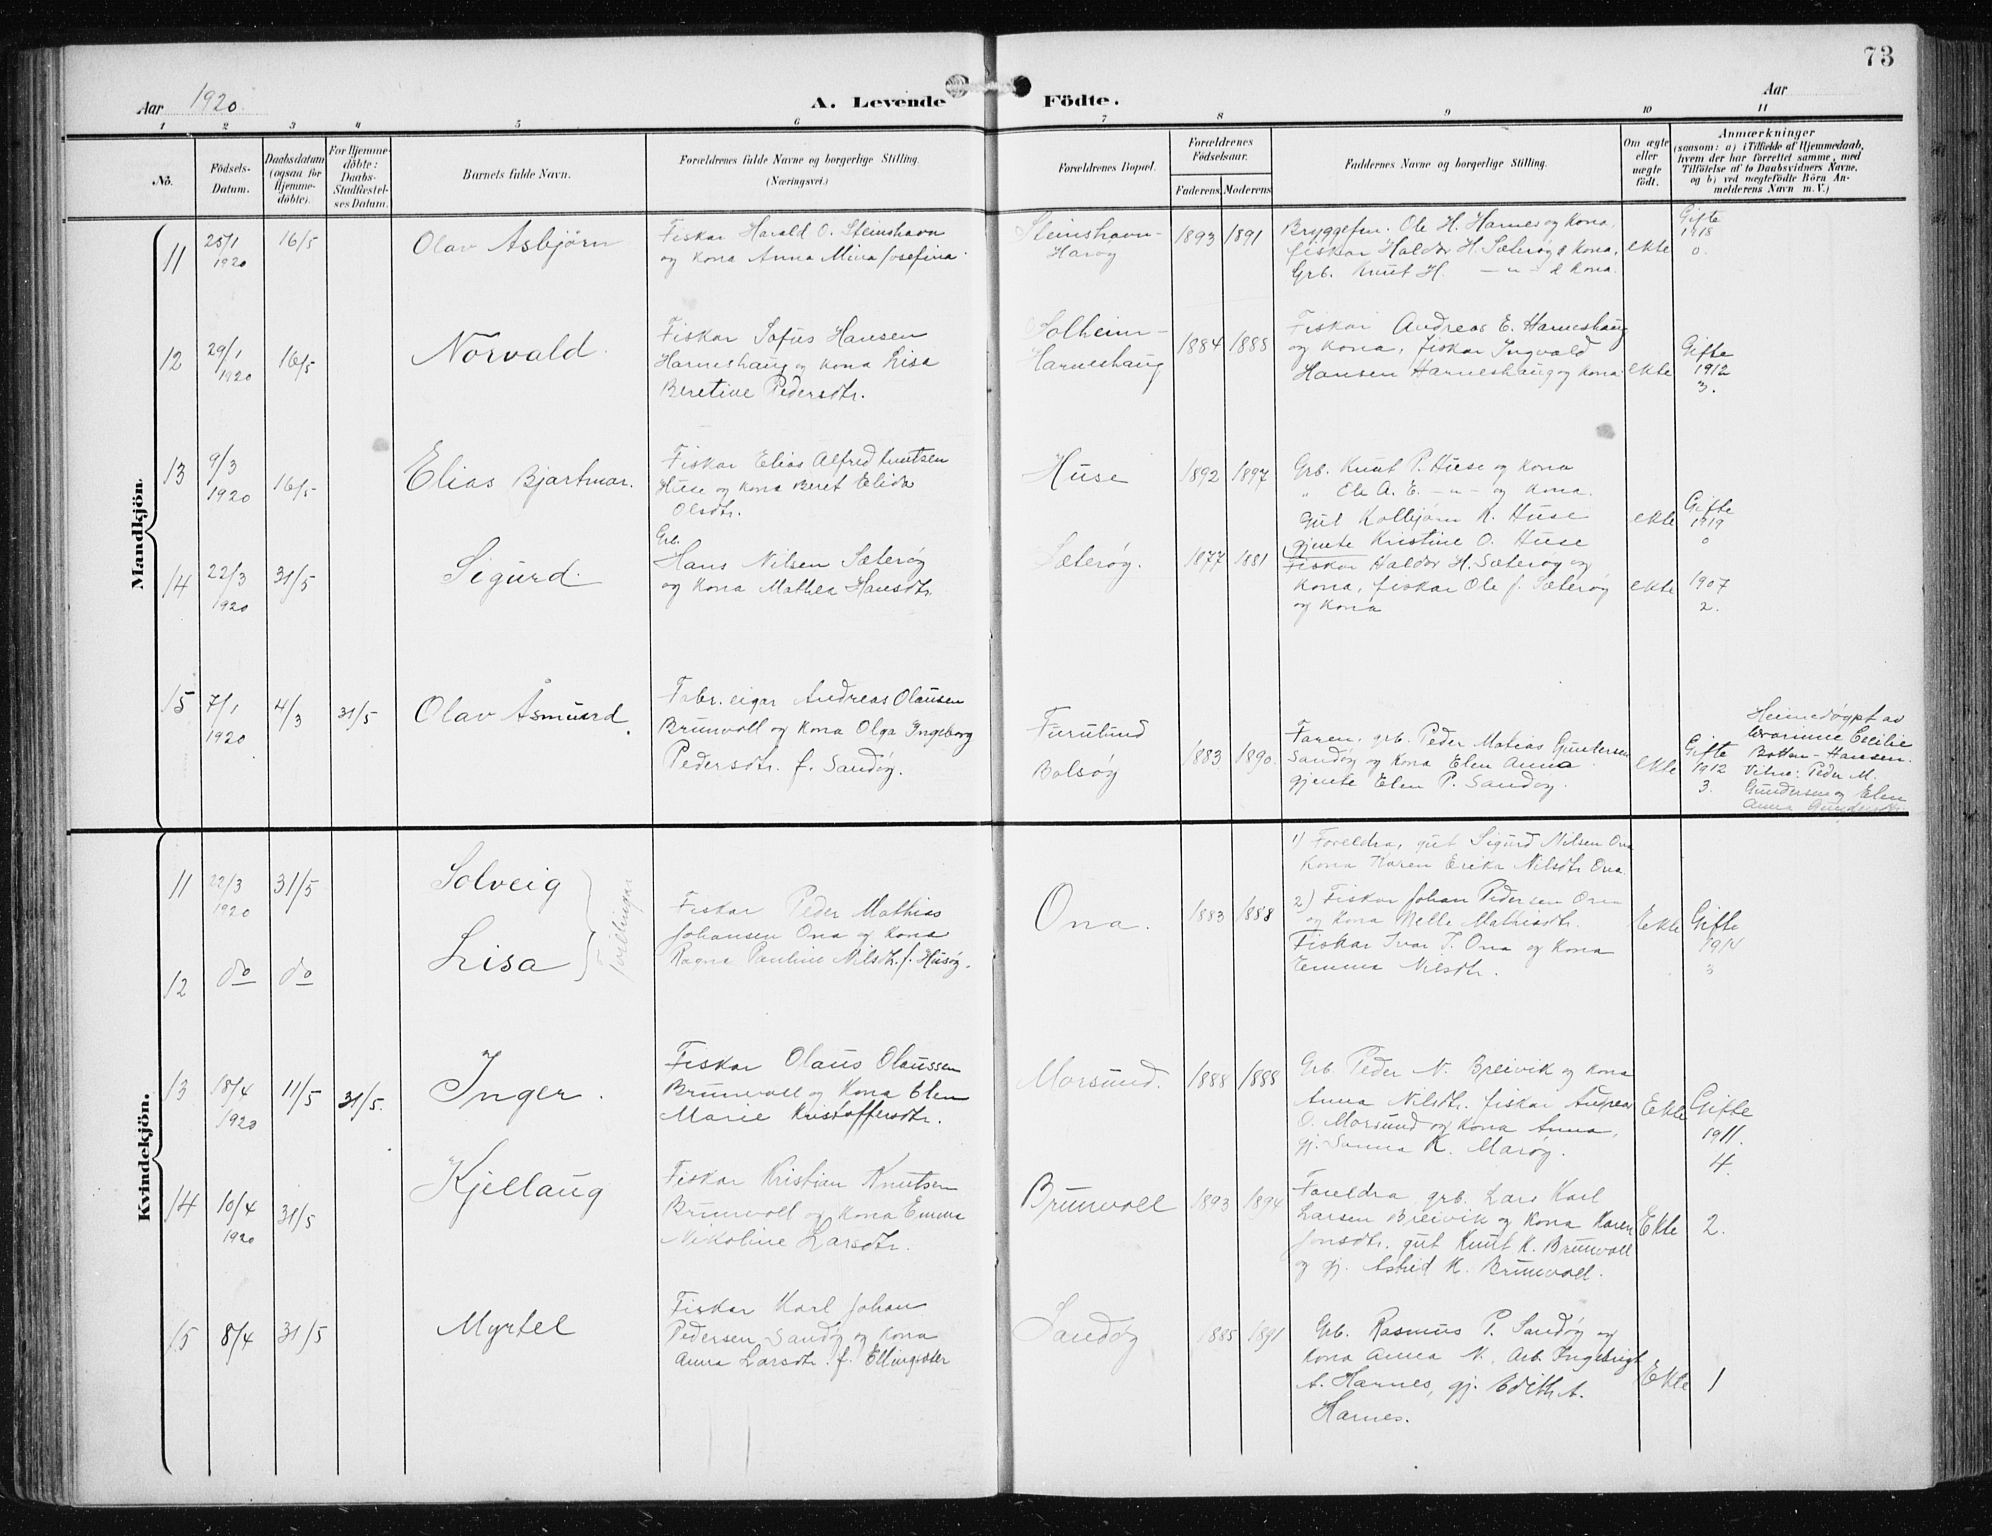 73
Aar 1920.
A. Levende Födte.
Aar
1 2 3 4 5 6 7 8 9 10 11
No.
Födsels-Datum.
Daabsdatum (ogsaa for Hjemmedöbte).
For Hjemmedöbte: Daabs-Stadfæstelses Datum.
Barnets fulde Navn.
Forældrenes fulde Navne og borgerlige Stilling.
(Næringsvei.)
Forældrenes Bopæl.
Forældrenes Födselsaar.
Faderens. Moderens.
Faddernes Navne og borgerlige Stilling.
Om ægte eller uægte født.
Anmærkninger
(saasom: a) i Tilfælde af Hjemmedaab, hvem der har forrettet samme, med Tilföielse af to Daabsvidners Navne, og b) ved uægtefödte Börn Anmelderens Navn m. V.)
Mandkjön.
11
25/1 1920
16/5
Olav Asbjörn
Fiskar Harald O. Steinshavn
og kona Anna Mina Josefina.
Steinshavn-
Harøy
1893 1891
Bryggefm. Ole H. Harnes og kona,
fiskar Haldor H. Sæterøy & kona,
Grb. Knut H. — " — & kona.
ekte
Gifte
1918
0.
12
29/1 1920
16/5
Norvald.
Fiskar Sofus Hansen
Harneshaug og kona Lisa
Beretine Pedersdtr.
Solheim-
Harneshaug
1884 1888
Fiskar Andreas E. Harneshaug
og kona, fiskar Ingvald
Hansen Harneshaug og kona
ekte
Gifte
1912
3.
13
9/3 1920
16/5
Elias Bjartmar.
Fiskar Elias Alfred Knutsen
Huse og kona Beret Elida
Olsdtr.
Huse
1892 1897
Grb. Knut P. Huse og kona
" Ole A. E. — " — og kona.
Gut Kolbjørn K. Huse
gjente Kristine O. Huse
ekte
Gifte
1919
0
14
22/3 1920
31/5
Sigurd.
Grb.
Hans Nilsen Sæterøy
og kona Mathea Hansdtr.
Sæterøy.
1877 1881
Fiskar Haldor H. Sæterøy og
kona, fiskar Ole J. Sæterøy
og kona
ekte
1907
2.
15
7/1 1920
4/3
31/5
Olav Åsmund.
Fabr. eigar Andreas Olausen
Brunvoll og kona Olga Ingeborg
Pedersdtr. f. Sandøy.
Furulund
Bolsøy
1883 1890.
Faren, grb. Peder Matias Gundersen
Sandøy og kona Elen Anna
gjente Elen P. Sandøy.
ekte
Gifte
1912
3.
Heimedøypt av
Cecilie
Botten-Hansen.
Vitne: Peder M.
Gundersen og Elen
Anna Gundersen
Kvindekjön.
11
22/3 1920
31/5
Solveig
12
do
do
Lisa
Tvillingar
Fiskar Peder Mathias
Johansen Ona og kona
Ragna Pauline Nilsdtr. f. Husøy.
Ona.
1883 1888
1) Foreldra, gut Sigurd Nilsen Ona
kona Karen Erika Nilsdtr Ona.
2) Fiskar Johan Pedersen Ona
og kona Nelle Mathiasdtr.
Fiskar Ivar J. Ona og kona
Emma Nilsdtr.
Ekte
Gifte
3
13
18/4 1920
11/5
31/5.
Inger.
Fiskar Olaus Olaussen
Brunvoll og kona Elen
Marie Kristoffersdtr.
Morsund.
1888 1888
Grb. Peder N. Breivik og kona
Anna Nilsdtr. fiskar Andreas
O. Morsund og kona Anna,
gj. Sanna K. Marøy.
Ekte
Gifte
1911.
4.
14
10/4 1920
31/5
Kjellaug
Fiskar Kristian Knutsen
Brunvoll og kona Emma
Nikoline Larsdtr.
Brunvoll
1893 1894
Foreldra, grb. Lars Karl
Larsen Breivik og kona Karen
Jonsdtr. gut Knut K. Brunvoll
og gj. Astrid K. Brunvoll.
Ekte
2.
15
8/4
31/5
Myrtel
Fiskar Karl Johan
Pedersen Sandøy og kona
Anna Larsdtr. f. Ellingsæter
Sandøy
1885 1891
Grb. Rasmus P. Sandøy og
kona Anna N. Arb. Ingebrigt
A. Harnes, gj. Edith A.
Harnes.
Ekte
1